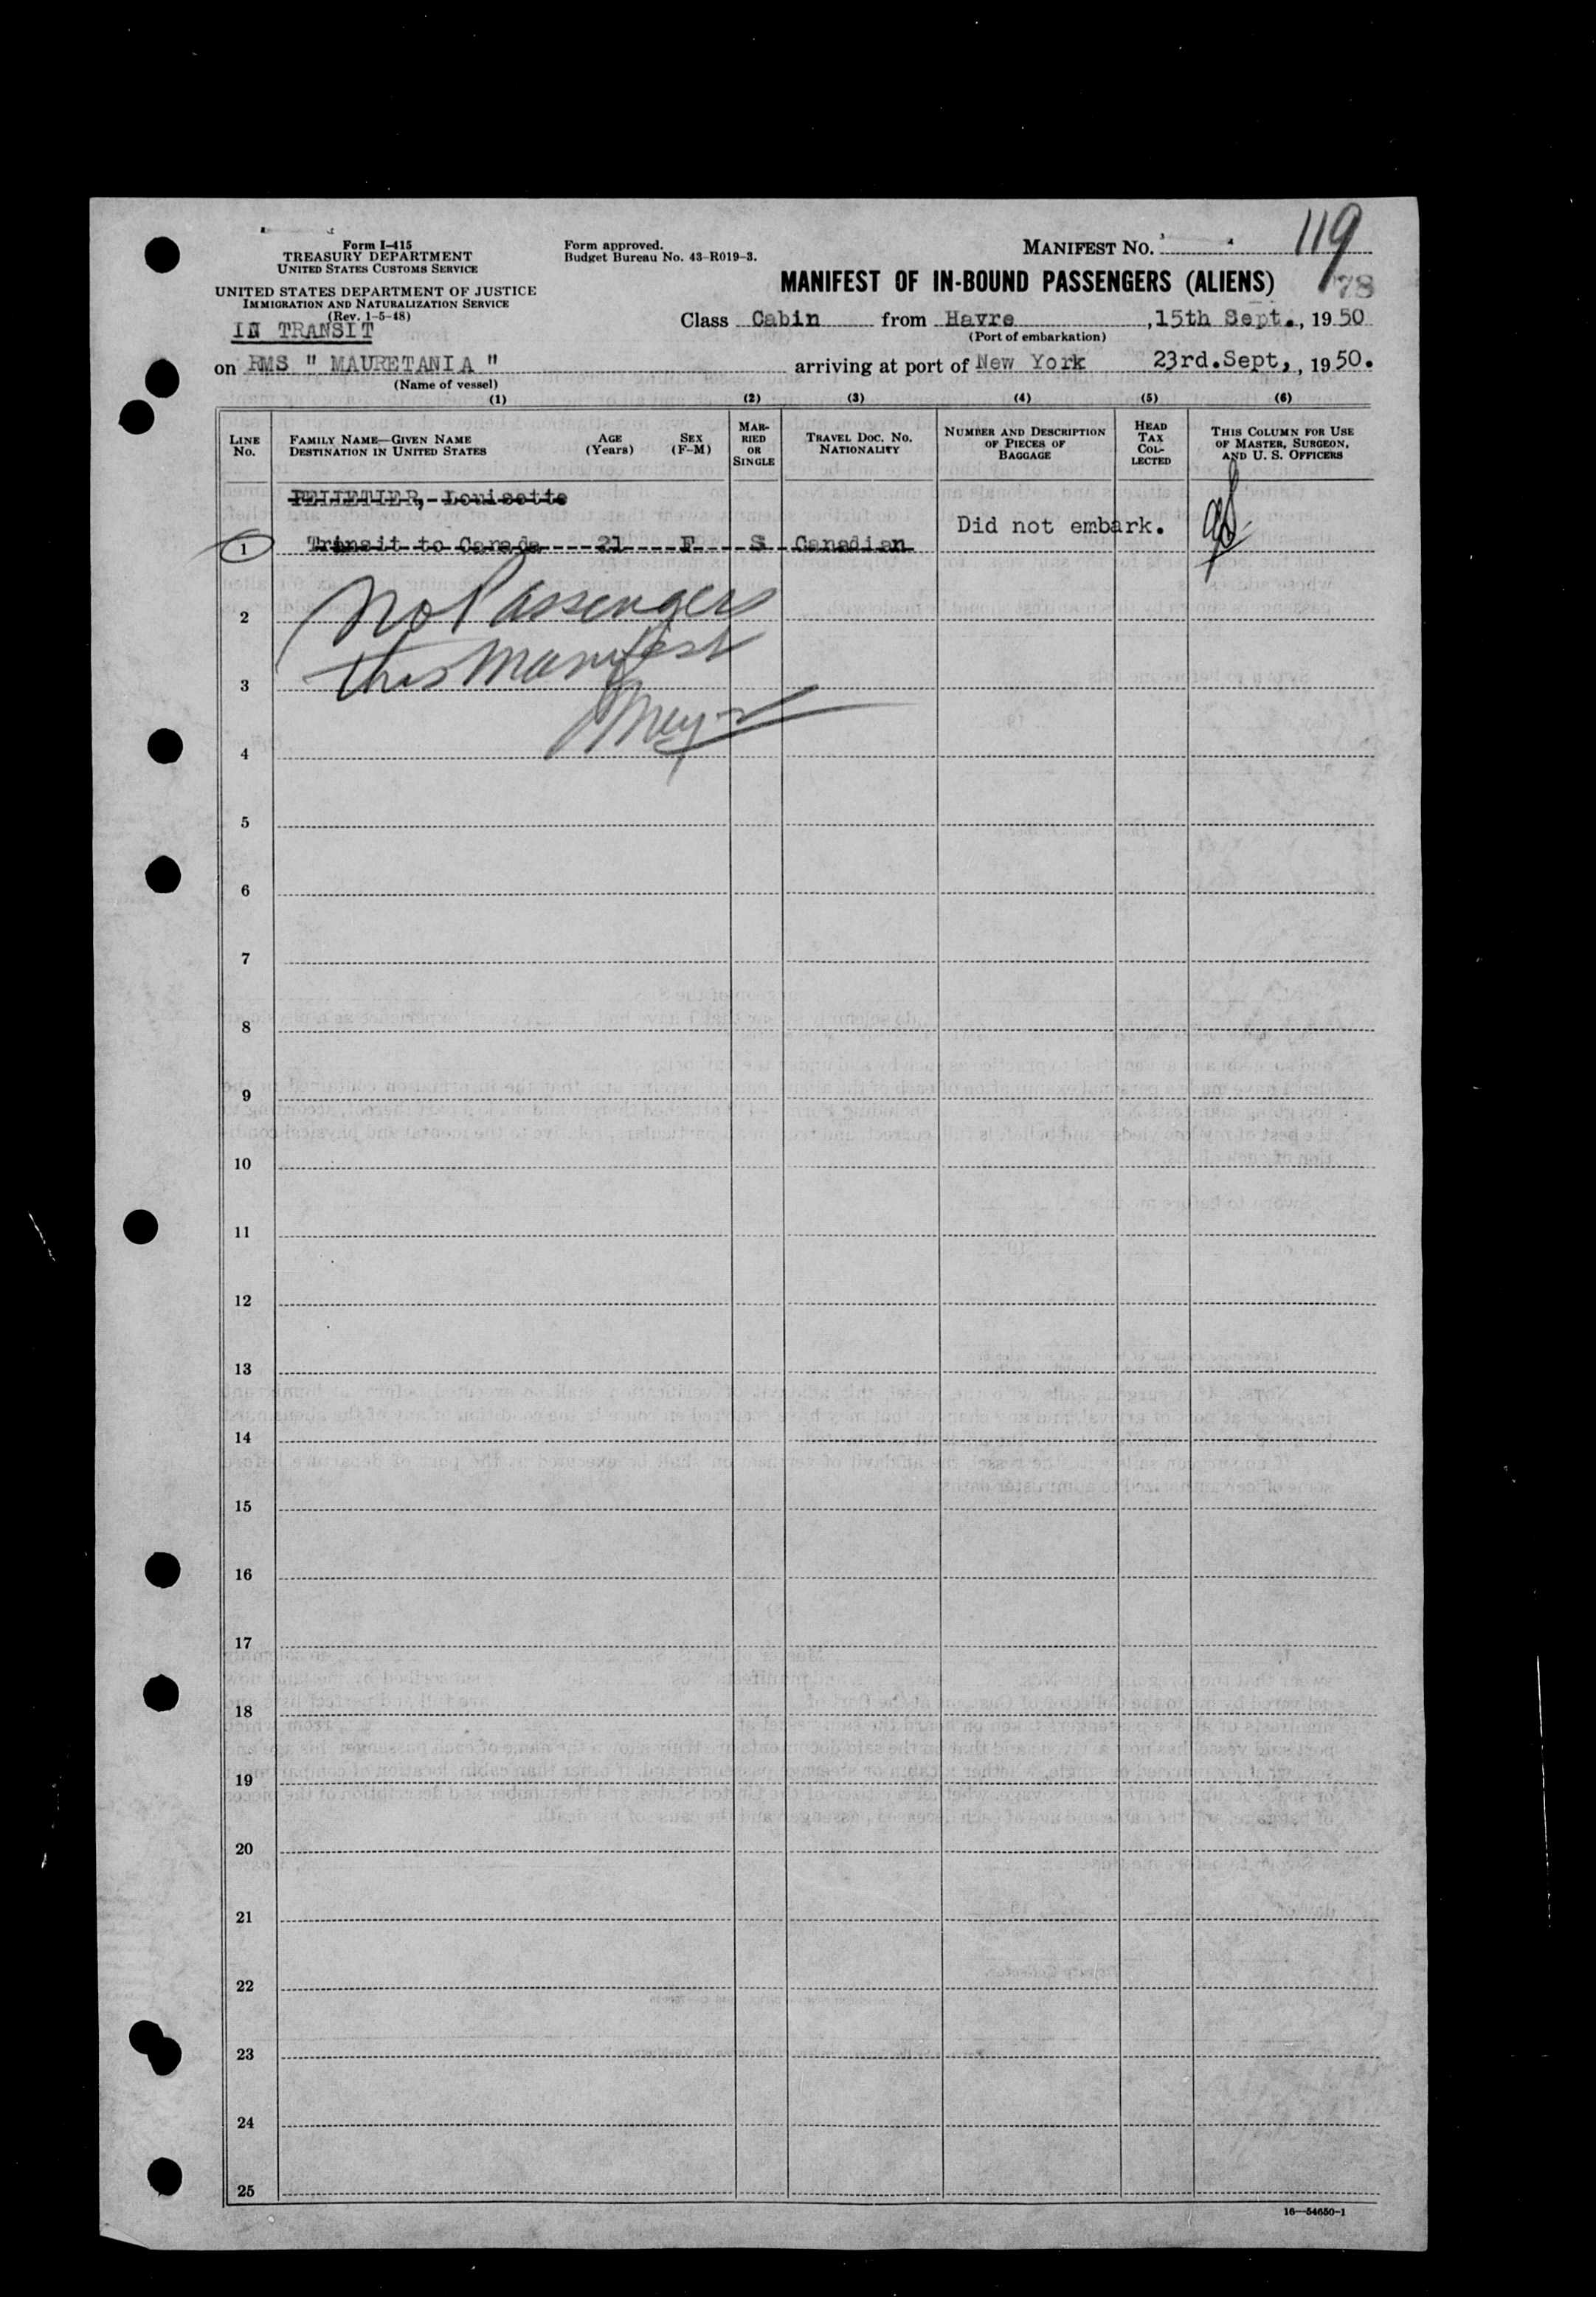 Form I-415
TREASURY DEPARTMENT
UNITED STATES CUSTOMS SERVICE
UNITED STATES DEPARTMENT OF JUSTICE
IMMIGRATION AND NATURALIZATION SERVICE
(Rev. 1-5-48)
IN TRANSIT
Form approved.
Budget Bureau No. 43-R019-3.
MANIFEST NO. 119
78
MANIFEST OF IN-BOUND PASSENGERS (ALIENS)
Class Cabin from Havre, 15th Sept., 1950
(Port of embarkation)
on RMS " MAURETANIA " arriving at port of New York 23rd.Sept,, 1950.
(Name of vessel)
(1) (2) (3) (4) (5) (6)
LINE No. FAMILY NAME—GIVEN NAME DESTINATION IN UNITED STATES AGE (Years) SEX (F-M) MARRIED OR SINGLE TRAVEL DOC. NO. NATIONALITY NUMBER AND DESCRIPTION OF PIECES OF BAGGAGE HEAD TAX COLLECTED THIS COLUMN FOR USE OF MASTER, SURGEON, AND U. S. OFFICERS
PELLETIER, Louisette
Did not embark.
1 Transit to Canada 21 F S Canadian
2 No Passengers
3 this Manifest
4
5
6
7
8
9
10
11
12
13
14
15
16
17
18
19
20
21
22
23
24
25
16—54650-1